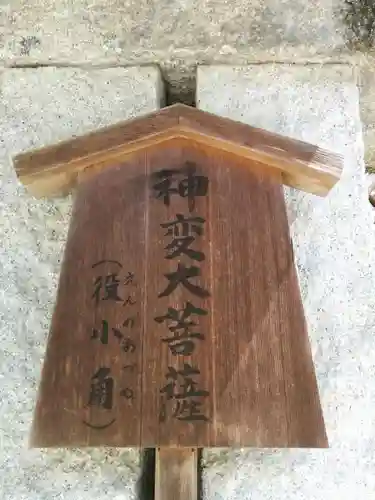 神変大菩薩
(役小角)
えんのおづの